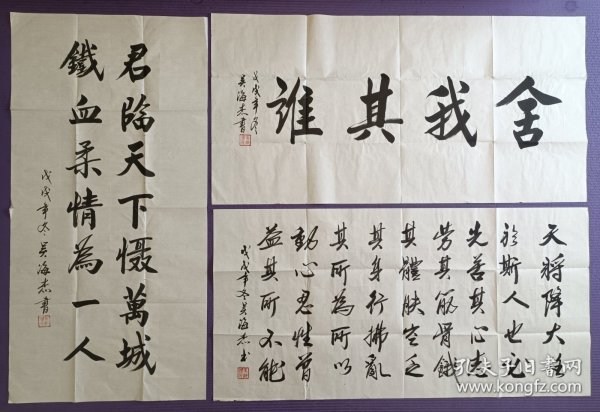 君临天下慑萬城
鐵血柔情為一人
戊戌年冬吴海杰書
舍我其誰
戊戌年冬
吴海杰書
天將降大任
於斯人也必
先苦其心志
劳其筋骨餓
其體肤空乏
其身行拂亂
其所為所以
動心忍性曾
益其所不能
戊戌年冬吴海杰书
孔夫子旧书网
www.kongfz.com